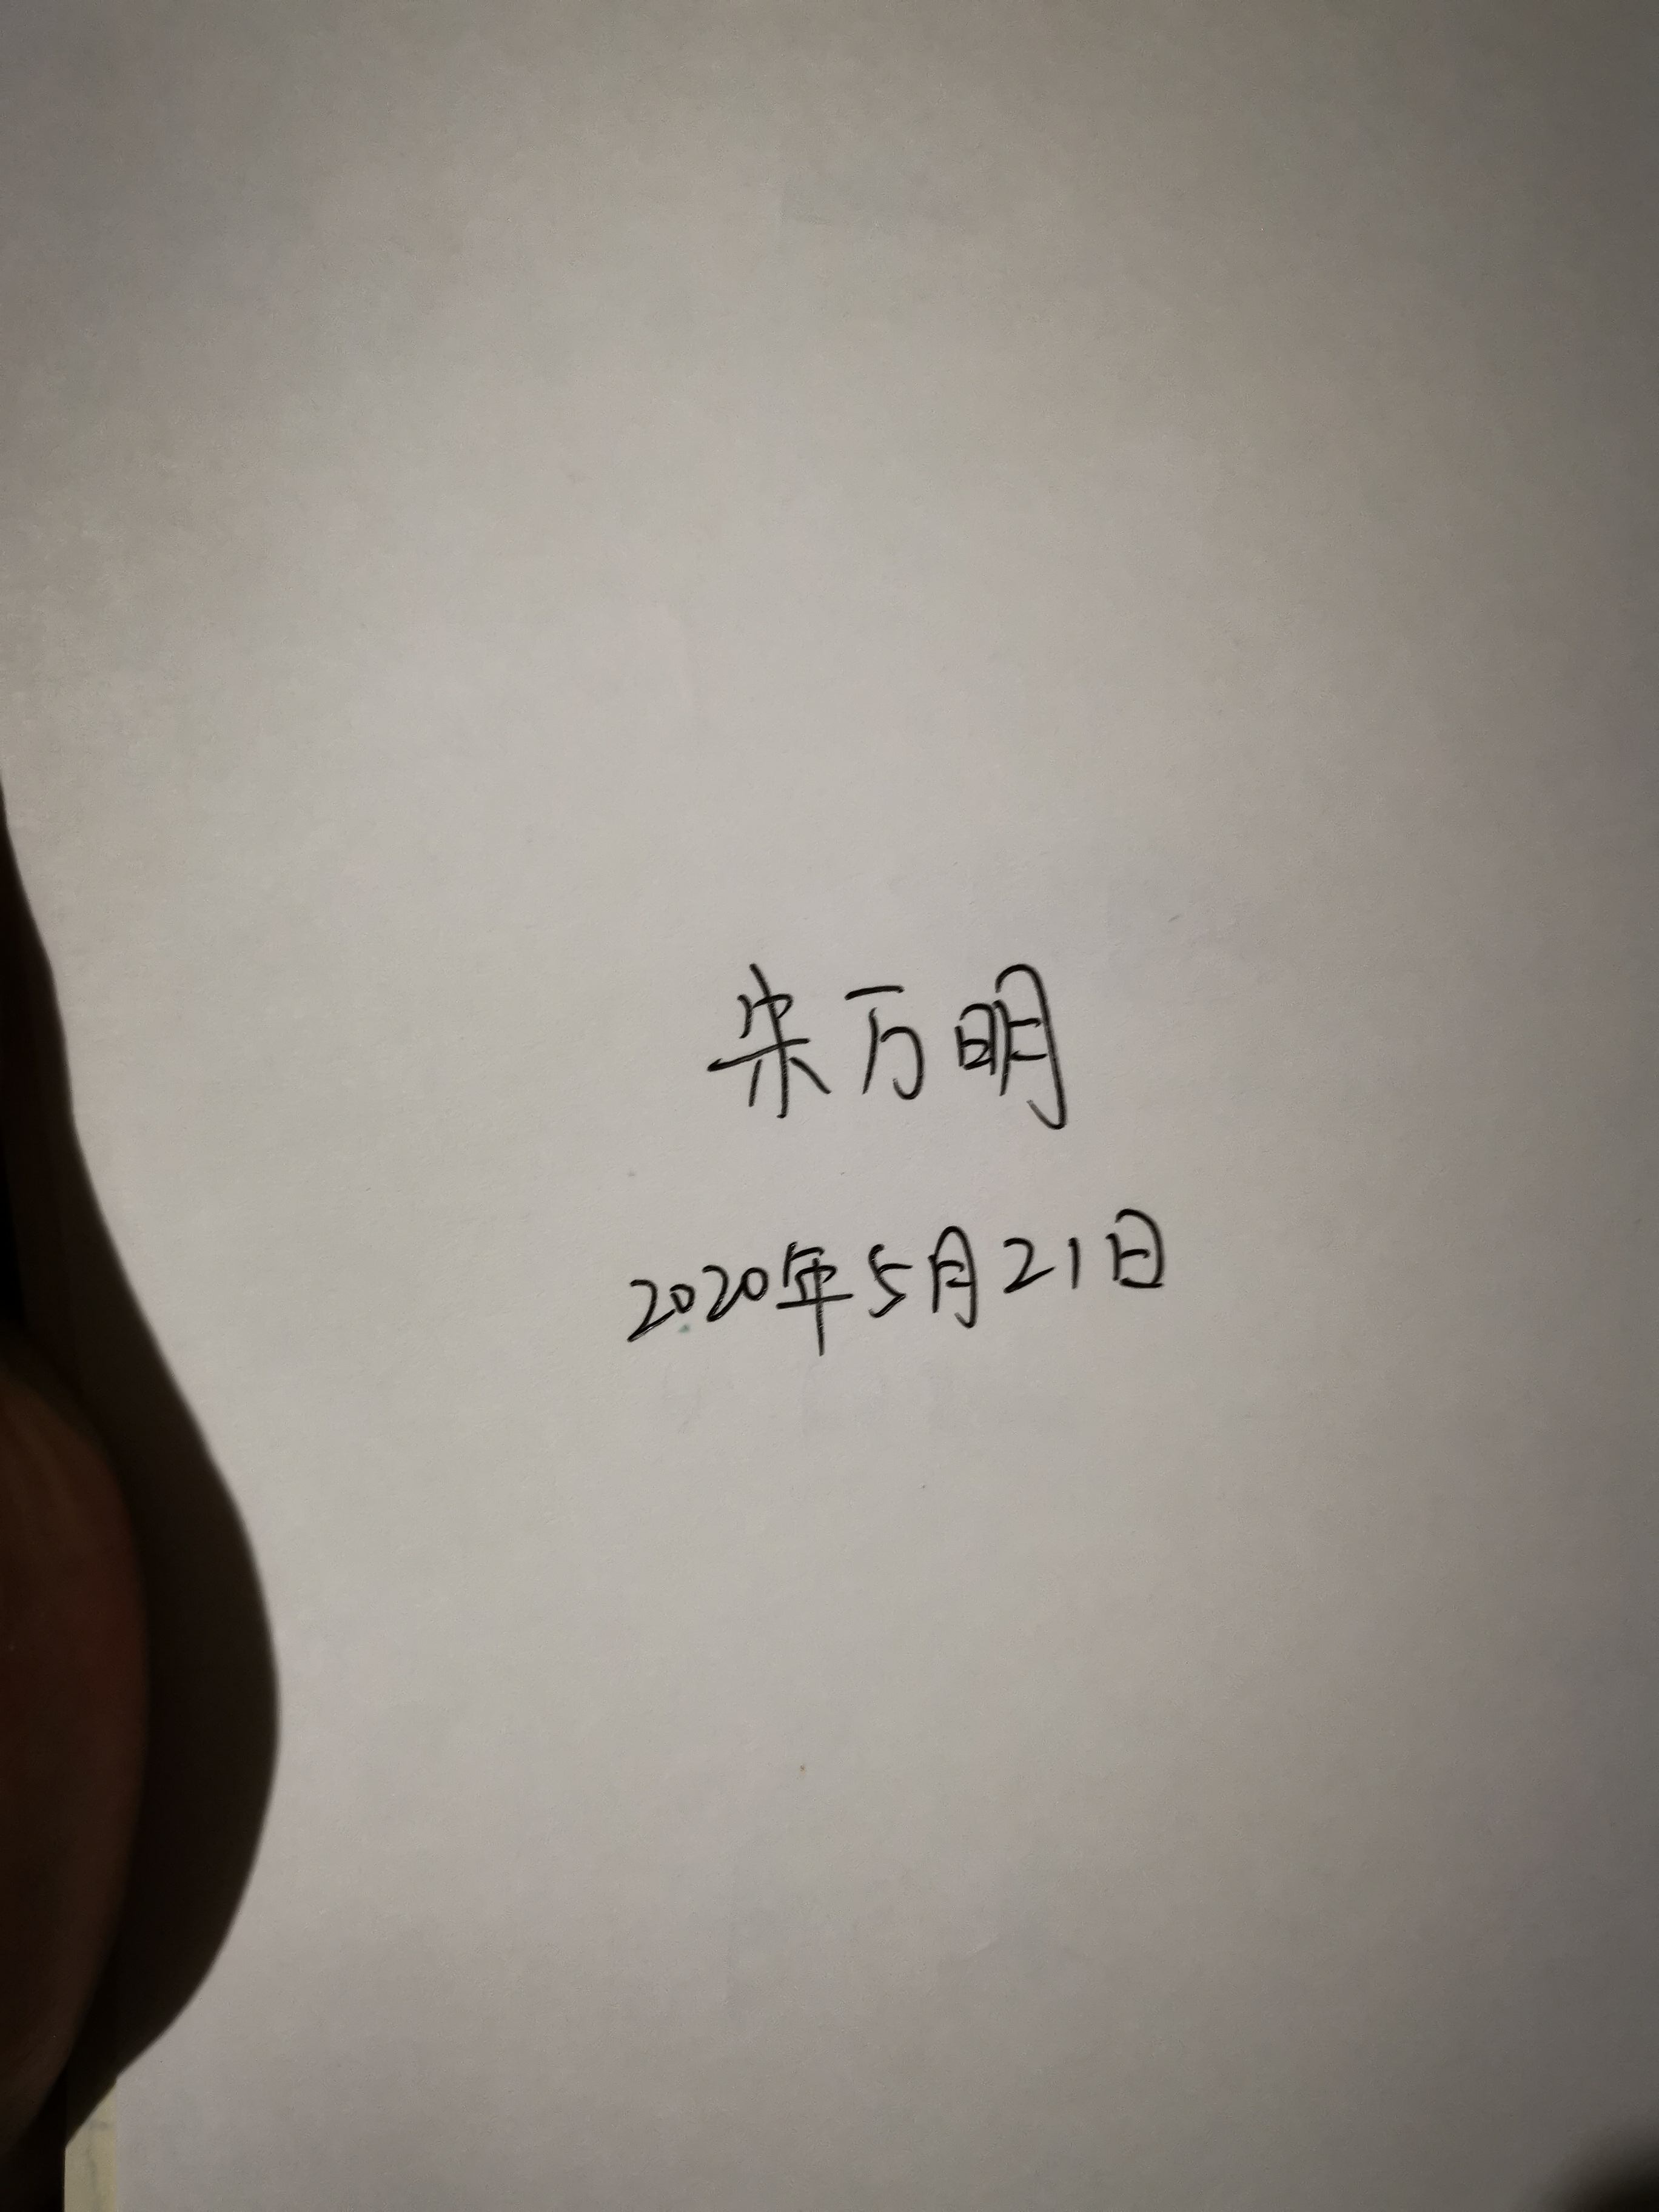 宋万明
2020年5月21日